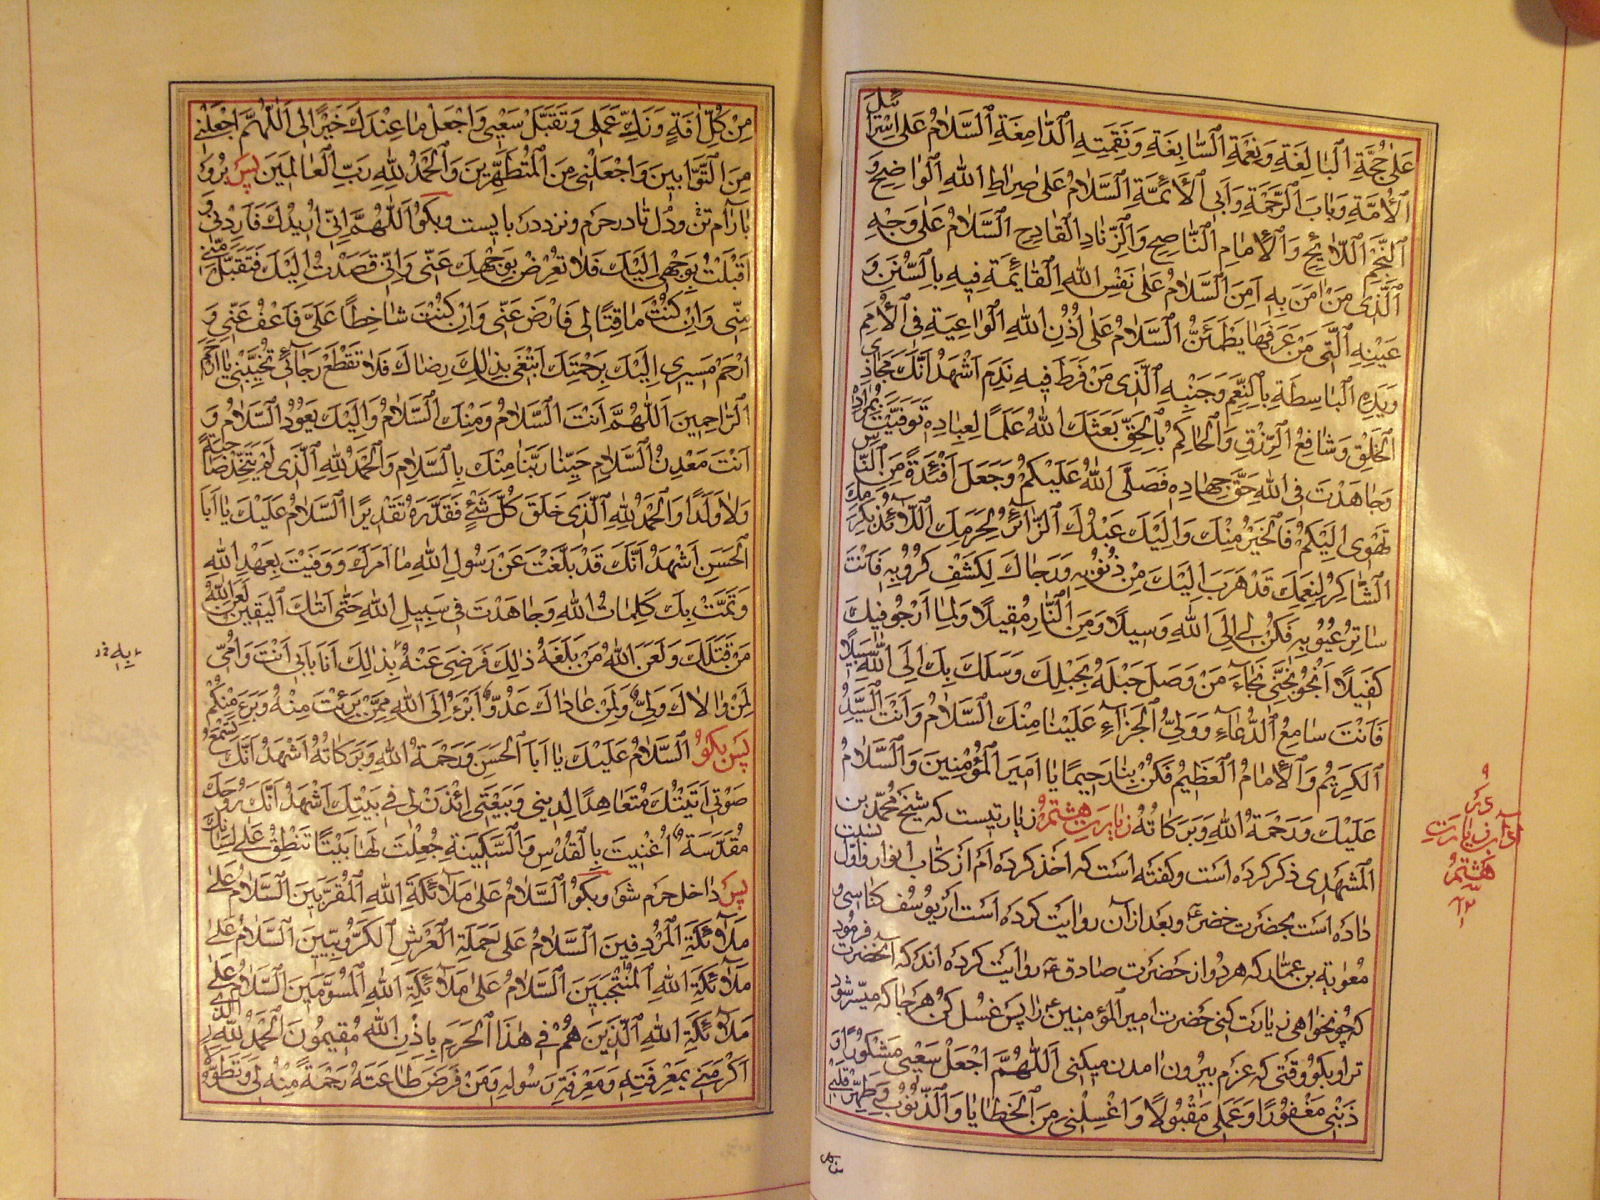 عَلىٰ حُجَّةِ الْبَالِغَةِ وَنِعْمَةِ السَّابِغَةِ وَنَقِمَتِهِ الدَّامِغَةِ السَّلَامُ عَلىٰ اِسْرَائيلَ
الْاُمَّةِ وَبَابِ الرَّحْمَةِ وَاَبِی الْاَئِمَّةِ السَّلَامُ عَلىٰ صِرَاطِ اللهِ الْوَاضِحِ وَ
النَّجْمِ اللَّائِحِ وَالْاِمَامِ النَّاصِحِ وَالزِّنَادِ الْقَادِحِ السَّلَامُ عَلىٰ وَجْهِ
الَّذِی مَنْ اٰمَنَ بِهِ اَمِنَ السَّلَامُ عَلىٰ نَفْسِ اللهِ الْقَائِمَةِ فِيهِ بِالسُّنَنِ وَ
عَيْنِهِ الَّتِی مَنْ عَرَفَهَا يَطْمَئِنُّ السَّلَامُ عَلىٰ اُذُنِ اللهِ الْوَاعِيَةِ فِی الْاُمَمِ
وَيَدِهِ الْبَاسِطَةِ بِالنِّعَمِ وَجَنْبِهِ الَّذِی مَنْ فَرَّطَ فِيهِ نَدِمَ اَشْهَدُ اَنَّكَ مُجَازِی
الْخَلْقِ وَشَافِعُ الرِّزْقِ وَالْحَاكِمُ بِالْحَقِّ بَعَثَكَ اللهُ عَلَمًا لِعِبَادِهِ فَوَفَيْتَ بِمُرَادِهِ
وَجَاهَدْتَ فِی اللهِ حَقَّ جِهَادِهِ فَصَلَّى اللهُ عَلَيْكُمْ وَجَعَلَ اَفْئِدَةً مِنَ النَّاسِ
تَهْوِی اِلَيْكُمْ فَالْخَيْرُ مِنْكَ وَاِلَيْكَ عَبْدُكَ الزَّائِرُ لِحَرَمِكَ اللَّائِذُ بِكَرَمِكَ
الشَّاكِرُ لِنِعَمِكَ قَدْ هَرَبَ اِلَيْكَ مِنْ ذُنُوبِهِ وَرَجَاكَ لِكَشْفِ كُرُوبِهِ فَاَنْتَ
سَاتِرُ عُيُوبِهِ فَكُنْ لِی اِلَى اللهِ وَسِيلًا وَمِنَ النَّارِ مُقِيلًا وَلِمَا اَرْجُو فِيكَ
كَفِيلًا اَنْجُو نَجَّنِی نَجَاةَ مَنْ وَصَلَ حَبْلَهُ بِحَبْلِكَ وَسَلَكَ بِكَ اِلَى اللهِ سَبِيلًا
فَاَنْتَ سَامِعُ الدُّعَاءِ وَوَلِیُّ الْجَزَاءِ عَلَيْنَا مِنْكَ السَّلَامُ وَاَنْتَ السَّيِّدُ
الْكَرِيمُ وَالْاِمَامُ الْعَظِيمُ فَكُنْ بِنَا رَحِيمًا يَا اَمِيرَ الْمُؤْمِنِينَ وَالسَّلَامُ
عَلَيْكَ وَرَحْمَةُ اللهِ وَبَرَكَاتُهُ زيارت هشتم زيارتيست كه شيخ محمد بن
المشهدی ذكر كرده است وكفته است كه اخذ كرده ام از كتاب انوار واول نسبت
داده است بحضرت خضر ع وبعد از آن روايت كرده است از يوسف كناسی و
معوية بن عمار كه هر دو از حضرت صادق ع روايت كرده اند كه آنحضرت فرمود
كه چون خواهی زيارت كنی حضرت امير المؤمنين ع را پس غسل كن هر جا كه ميسر شود
ترا وبكو وقتی كه عزم بيرون آمدن ميكنی اَللّٰهُمَّ اجْعَلْ سَعْيِی مَشْكُورًا وَ
ذَنْبِی مَغْفُورًا وَعَمَلِی مَقْبُولًا وَاغْسِلْنِی مِنَ الْخَطَايَا وَالذُّنُوبِ وَطَهِّرْ قَلْبِی
زيارت
هشتم
مِنْ كُلِّ اٰفَةٍ وَزَكِّ عَمَلِی وَتَقَبَّلْ سَعْيِی وَاجْعَلْ مَا عِنْدَكَ خَيْرًا لِی اَللّٰهُمَّ اجْعَلْنِی
مِنَ التَّوَّابِينَ وَاجْعَلْنِی مِنَ الْمُتَطَهِّرِينَ وَالْحَمْدُ لِلّٰهِ رَبِّ الْعَالَمِينَ پس برو
بآرام تن ودل تا در حرم ونزد در بايست وبكو اَللّٰهُمَّ اِنِّی اُرِيدُكَ فَاَرِدْنِی وَ
اَقْبَلْتُ بِوَجْهِی اِلَيْكَ فَلَا تُعْرِضْ بِوَجْهِكَ عَنِّی وَاِنِّی قَصَدْتُ اِلَيْكَ فَتَقَبَّلْ مِنِّی
وَاِنْ كُنْتَ مَاقِتًا لِی فَارْضَ عَنِّی وَاِنْ كُنْتَ سَاخِطًا عَلَیَّ فَاعْفُ عَنِّی وَ
ارْحَمْ مَسِيرِی اِلَيْكَ بِرَحْمَتِكَ اَبْتَغِی بِذٰلِكَ رِضَاكَ فَلَا تَقْطَعْ رَجَائِی تُخَيِّبْنِی يَا اَرْحَمَ
الرَّاحِمِينَ اَللّٰهُمَّ اَنْتَ السَّلَامُ وَمِنْكَ السَّلَامُ وَاِلَيْكَ يَعُودُ السَّلَامُ وَ
اَنْتَ مَعْدِنُ السَّلَامِ حَيِّنَا رَبَّنَا مِنْكَ بِالسَّلَامِ وَالْحَمْدُ لِلّٰهِ الَّذِی لَمْ يَتَّخِذْ صَاحِبَةً
وَلَا وَلَدًا وَالْحَمْدُ لِلّٰهِ الَّذِی خَلَقَ كُلَّ شَیْءٍ فَقَدَّرَهُ تَقْدِيرًا السَّلَامُ عَلَيْكَ يَا اَبَا
الْحَسَنِ اَشْهَدُ اَنَّكَ قَدْ بَلَّغْتَ عَنْ رَسُولِ اللهِ مَا اَمَرَكَ وَوَفَيْتَ بِعَهْدِ اللهِ
وَتَمَّتْ بِكَ كَلِمَاتُ اللهِ وَجَاهَدْتَ فِی سَبِيلِ اللهِ حَتّٰى اَتٰكَ الْيَقِينُ لَعَنَ اللهُ
مَنْ قَتَلَكَ وَلَعَنَ اللهُ مَنْ بَلَغَهُ ذٰلِكَ فَرَضِیَ عَنْهُ بِذٰلِكَ اَنَا بِاَبِی اَنْتَ وَاُمِّی
لِمَنْ وَالَاكَ وَلِیٌّ وَلِمَنْ عَادَاكَ عَدُوٌّ اَبْرَءُ اِلَى اللهِ مِمَّنْ بَرِئْتَ مِنْهُ وَبَرِءَ مِنْكُمْ
پس بكو السَّلَامُ عَلَيْكَ يَا اَبَا الْحَسَنِ وَرَحْمَةُ اللهِ وَبَرَكَاتُهُ اَشْهَدُ اَنَّكَ تَسْمَعُ
صَوْتِی اَتَيْتُكَ مُتَعَاهِدًا لِدِينِی وَبَيْعَتِی ائْذَنْ لِی فِی بَيْتِكَ اَشْهَدُ اَنَّ رُوحَكَ
مُقَدَّسَةٌ اُعِينَتْ بِالْقُدْسِ وَالسَّكِينَةِ جُعِلْتَ لَهَا بَيْتًا تَنْطِقُ عَلىٰ لِسَانِكَ
پس داخل حرم شو وبكو السَّلَامُ عَلىٰ مَلَائِكَةِ اللهِ الْمُقَرَّبِينَ السَّلَامُ عَلىٰ
مَلَائِكَةِ الْمُرْدِفِينَ السَّلَامُ عَلىٰ حَمَلَةِ الْعَرْشِ الْكَرُّوبِيِّينَ السَّلَامُ عَلىٰ
مَلَائِكَةِ اللهِ الْمُنْتَجَبِينَ السَّلَامُ عَلىٰ مَلَائِكَةِ اللهِ الْمُسَوَّمِينَ السَّلَامُ عَلىٰ
مَلَائِكَةِ اللهِ الَّذِينَ هُمْ فِی هٰذَا الْحَرَمِ بِاِذْنِ اللهِ مُقِيمُونَ الْحَمْدُ لِلّٰهِ الَّذِی
اَكْرَمَنِی بِمَعْرِفَتِهِ وَمَعْرِفَةِ رَسُولِهِ وَمَنْ فَرَضَ طَاعَتَهُ رَحْمَةً مِنْهُ لِی وَتَطَوُّلًا